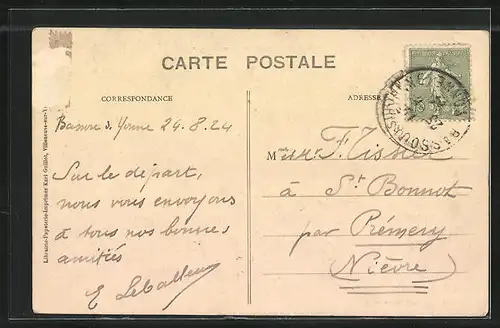 CARTE POSTALE
CORRESPONDANCE
ADRESSE
Bassou s. Yonne 24.8.24
Sur le départ,
nous vous envoyons
à tous nos bonnes
amitiés
E
Monsieur F. Tissier
à St Bonnot
par Prémery
(Nièvre)
Librairie-Papeterie-Imprimer Karl Guillot, Villeneuve-sur-Y